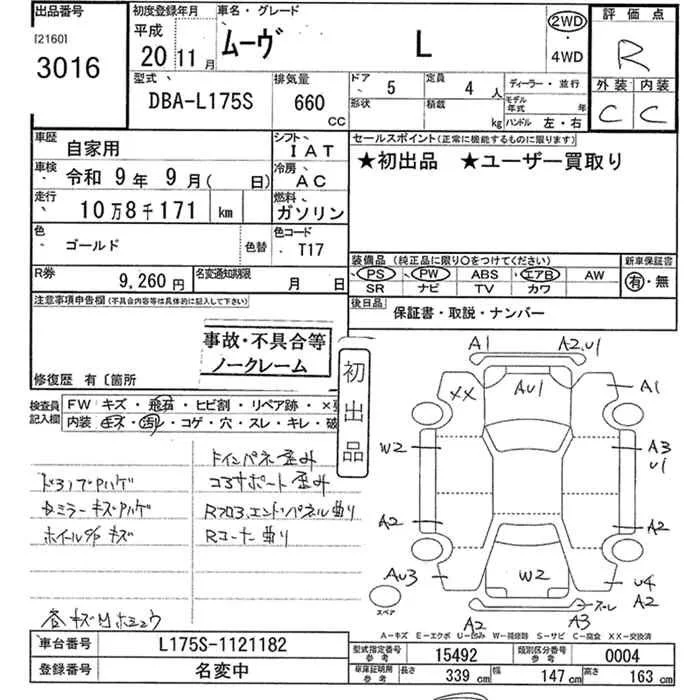 出品番号 初度登録年月 車名・グレード 評価点
[2160] 平成
3016 20年 11月 ムーヴ L 2WD・4WD R
外装 内装
C C
型式 排気量 ドア 5 定員 4人 ディーラー・並行
DBA-L175S 660cc 形状 積載 kg モデル年式 年
ハンドル 左・右
車歴 自家用 シフト IAT セールスポイント(正常に機能するものに限ります)
車検 令和 9年 9月( 日) 冷房 AC ★初出品 ★ユーザー買取り
走行 10万8千171 km 燃料 ガソリン
色 ゴールド 色替 色コード T17
装備品(純正品に限り○をつけてください) 新車保証書
PS PW ABS エアB AW 有・無
SR ナビ TV カワ
R券 9,260円 名変通知期限 月 日
後日品 保証書・取説・ナンバー
注意事項申告欄(不具合内容等は具体的に記入して下さい)
事故・不具合等
ノークレーム
修復歴 有〔箇所
初出品
検査員記入欄 FW キズ・飛石・ヒビ割・リペア跡・×
内装 キズ・汚れ・コゲ・穴・スレ・キレ・破
ドインパネ歪み
ドアノブPハゲ コアサポート歪み
ミラーキズPハゲ Rフロア、エンドパネル曲り
ホイールPキズ Rコーナー曲り
A1 A2,U1
XX AU1 A1
W2 A3
U1
A2 A2
AU3 W2 U4
A2
スペア A2 A3 ズレ
A―キズ E―エクボ U―凹み W―補修跡 S―サビ C―腐食 XX―交換済
車台番号 L175S-1121182 型式指定番号 参考 15492 類別区分番号 参考 0004
登録番号 名変中 車庫証明用 参考 長さ 339cm 幅 147cm 高さ 163cm